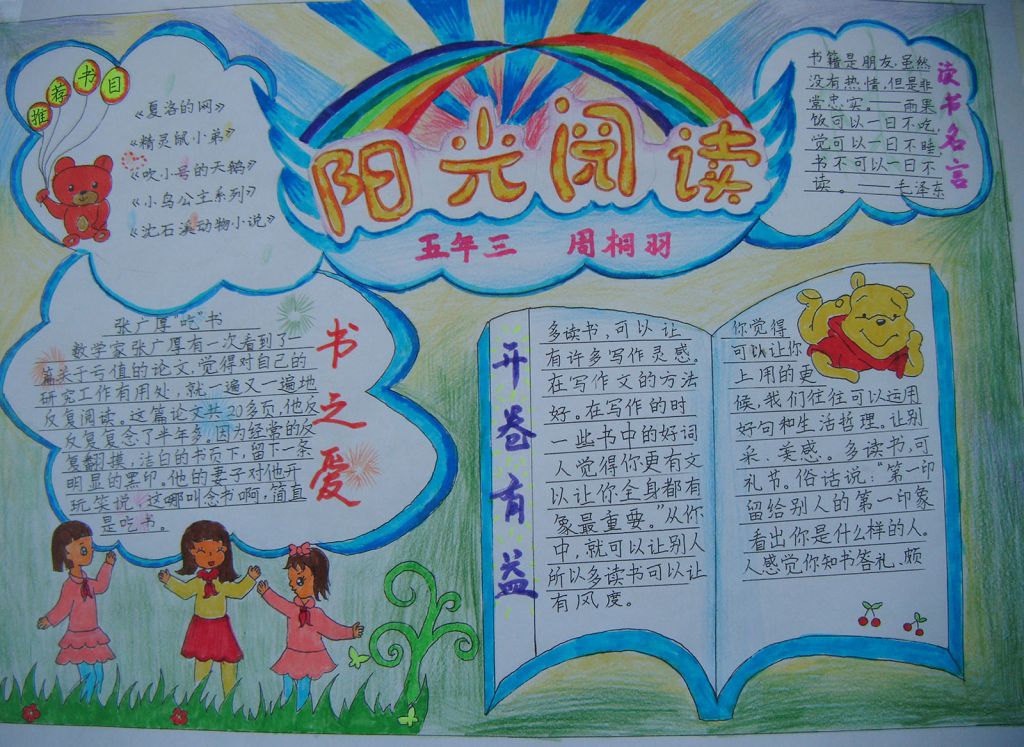 阳光阅读
五年三 周桐羽
推荐书目
《夏洛的网》
《精灵鼠小弟》
《吹小号的天鹅》
《小鸟公主系列》
《沈石溪动物小说》
读书名言
书籍是朋友,虽然
没有热情,但是非
常忠实。——雨果
饭可以一日不吃,
觉可以一日不睡,
书不可以一日不
读。——毛泽东
书之爱
张广厚"吃"书
数学家张广厚有一次看到了一
篇关于亏值的论文,觉得对自己的
研究工作有用处,就一遍又一遍地
反复阅读。这篇论文共20多页,他反
反复复念了半年多。因为经常的反
复翻摸,洁白的书页下,留下一条
明显的黑印。他的妻子对他开
玩笑说,这哪叫念书啊,简直
是吃书。
开卷有益
多读书,可以让
有许多写作灵感。
在写作文的方法
好。在写作的时
一些书中的好词
人觉得你更有文
以让你全身都有
象最重要。"从你
中,就可以让别人
所以多读书可以让
有风度。
你觉得
可以让你
上用的更
候,我们往往可以运用
好句和生活哲理。让别
采、美感。多读书,可
礼节。俗话说:"第一印
留给别人的第一印象
看出你是什么样的人。
人感觉你知书答礼、颇